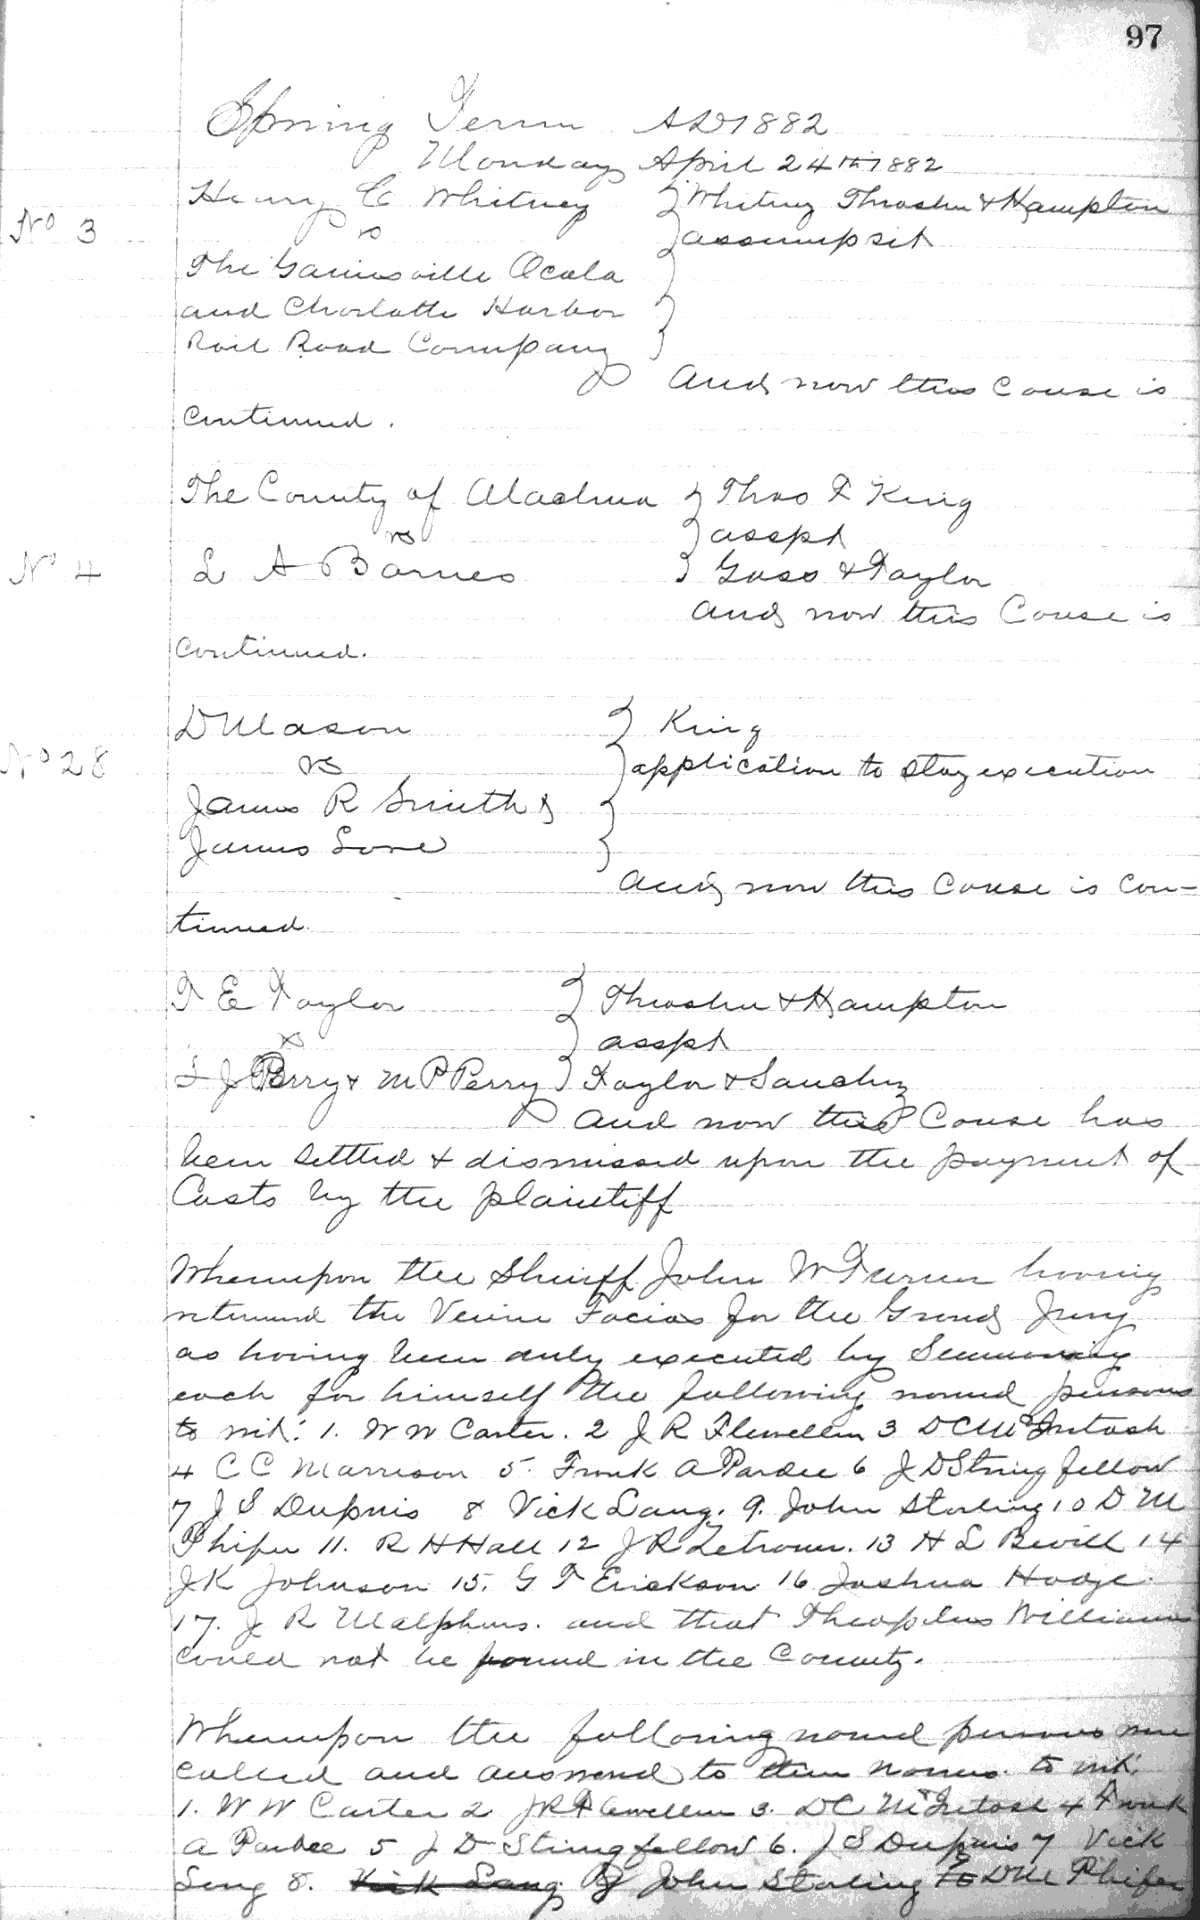 97
Spring Term AD 1882
Monday April 24th 1882
Henry C Whitney } Whitney Thrasher & Hampton
No 3
vs } assumpsit
The Gainesville Ocala
and Charlotte Harbor
Rail Road Company
And now this Cause is
continued.
The County of Alachua } Thos F King
vs } asspt
No 4 L A Barnes } Goss & Taylor
and now this Cause is
continued.
D Mason } King
No 28 vs } application to stay execution
James R Smith &
James Love
And now this Cause is con-
tinued.
F E Taylor } Thrasher & Hampton
vs } asspt
J Perry & M P Perry } Taylor & Sanchez
And now this Cause has
been settled & dismissed upon the payment of
Costs by the plaintiff
Whereupon the Sheriff John W Turner having
returned the Venire Facias for the Grand Jury
as having been duly executed by Summoning
each for himself the following named persons
to wit: 1. W W Carter. 2 J R Flewellen 3 D C McIntosh
4 C C Marrison 5. Frank A Pardee 6 J D Stringfellow
7 J S Dupuis 8 Vick Lang. 9. John Starling 10 D M
Phifer 11. R H Hall 12 J R Zetrouer. 13 H L Bevill 14
J K Johnson 15. G T Erickson 16 Joshua Hodge.
17. J R Malphurs. and that Theopilus Williams
could not be found in the County.
Whereupon the following named persons were
called and answered to their names. to wit:
1. W W Carter 2 J R Flewellen 3. D C McIntosh 4 Frank
A Pardee 5 J D Stringfellow 6. J S Dupuis 7 Vick
Lang 8. Vick Lang John Starling D M Phifer